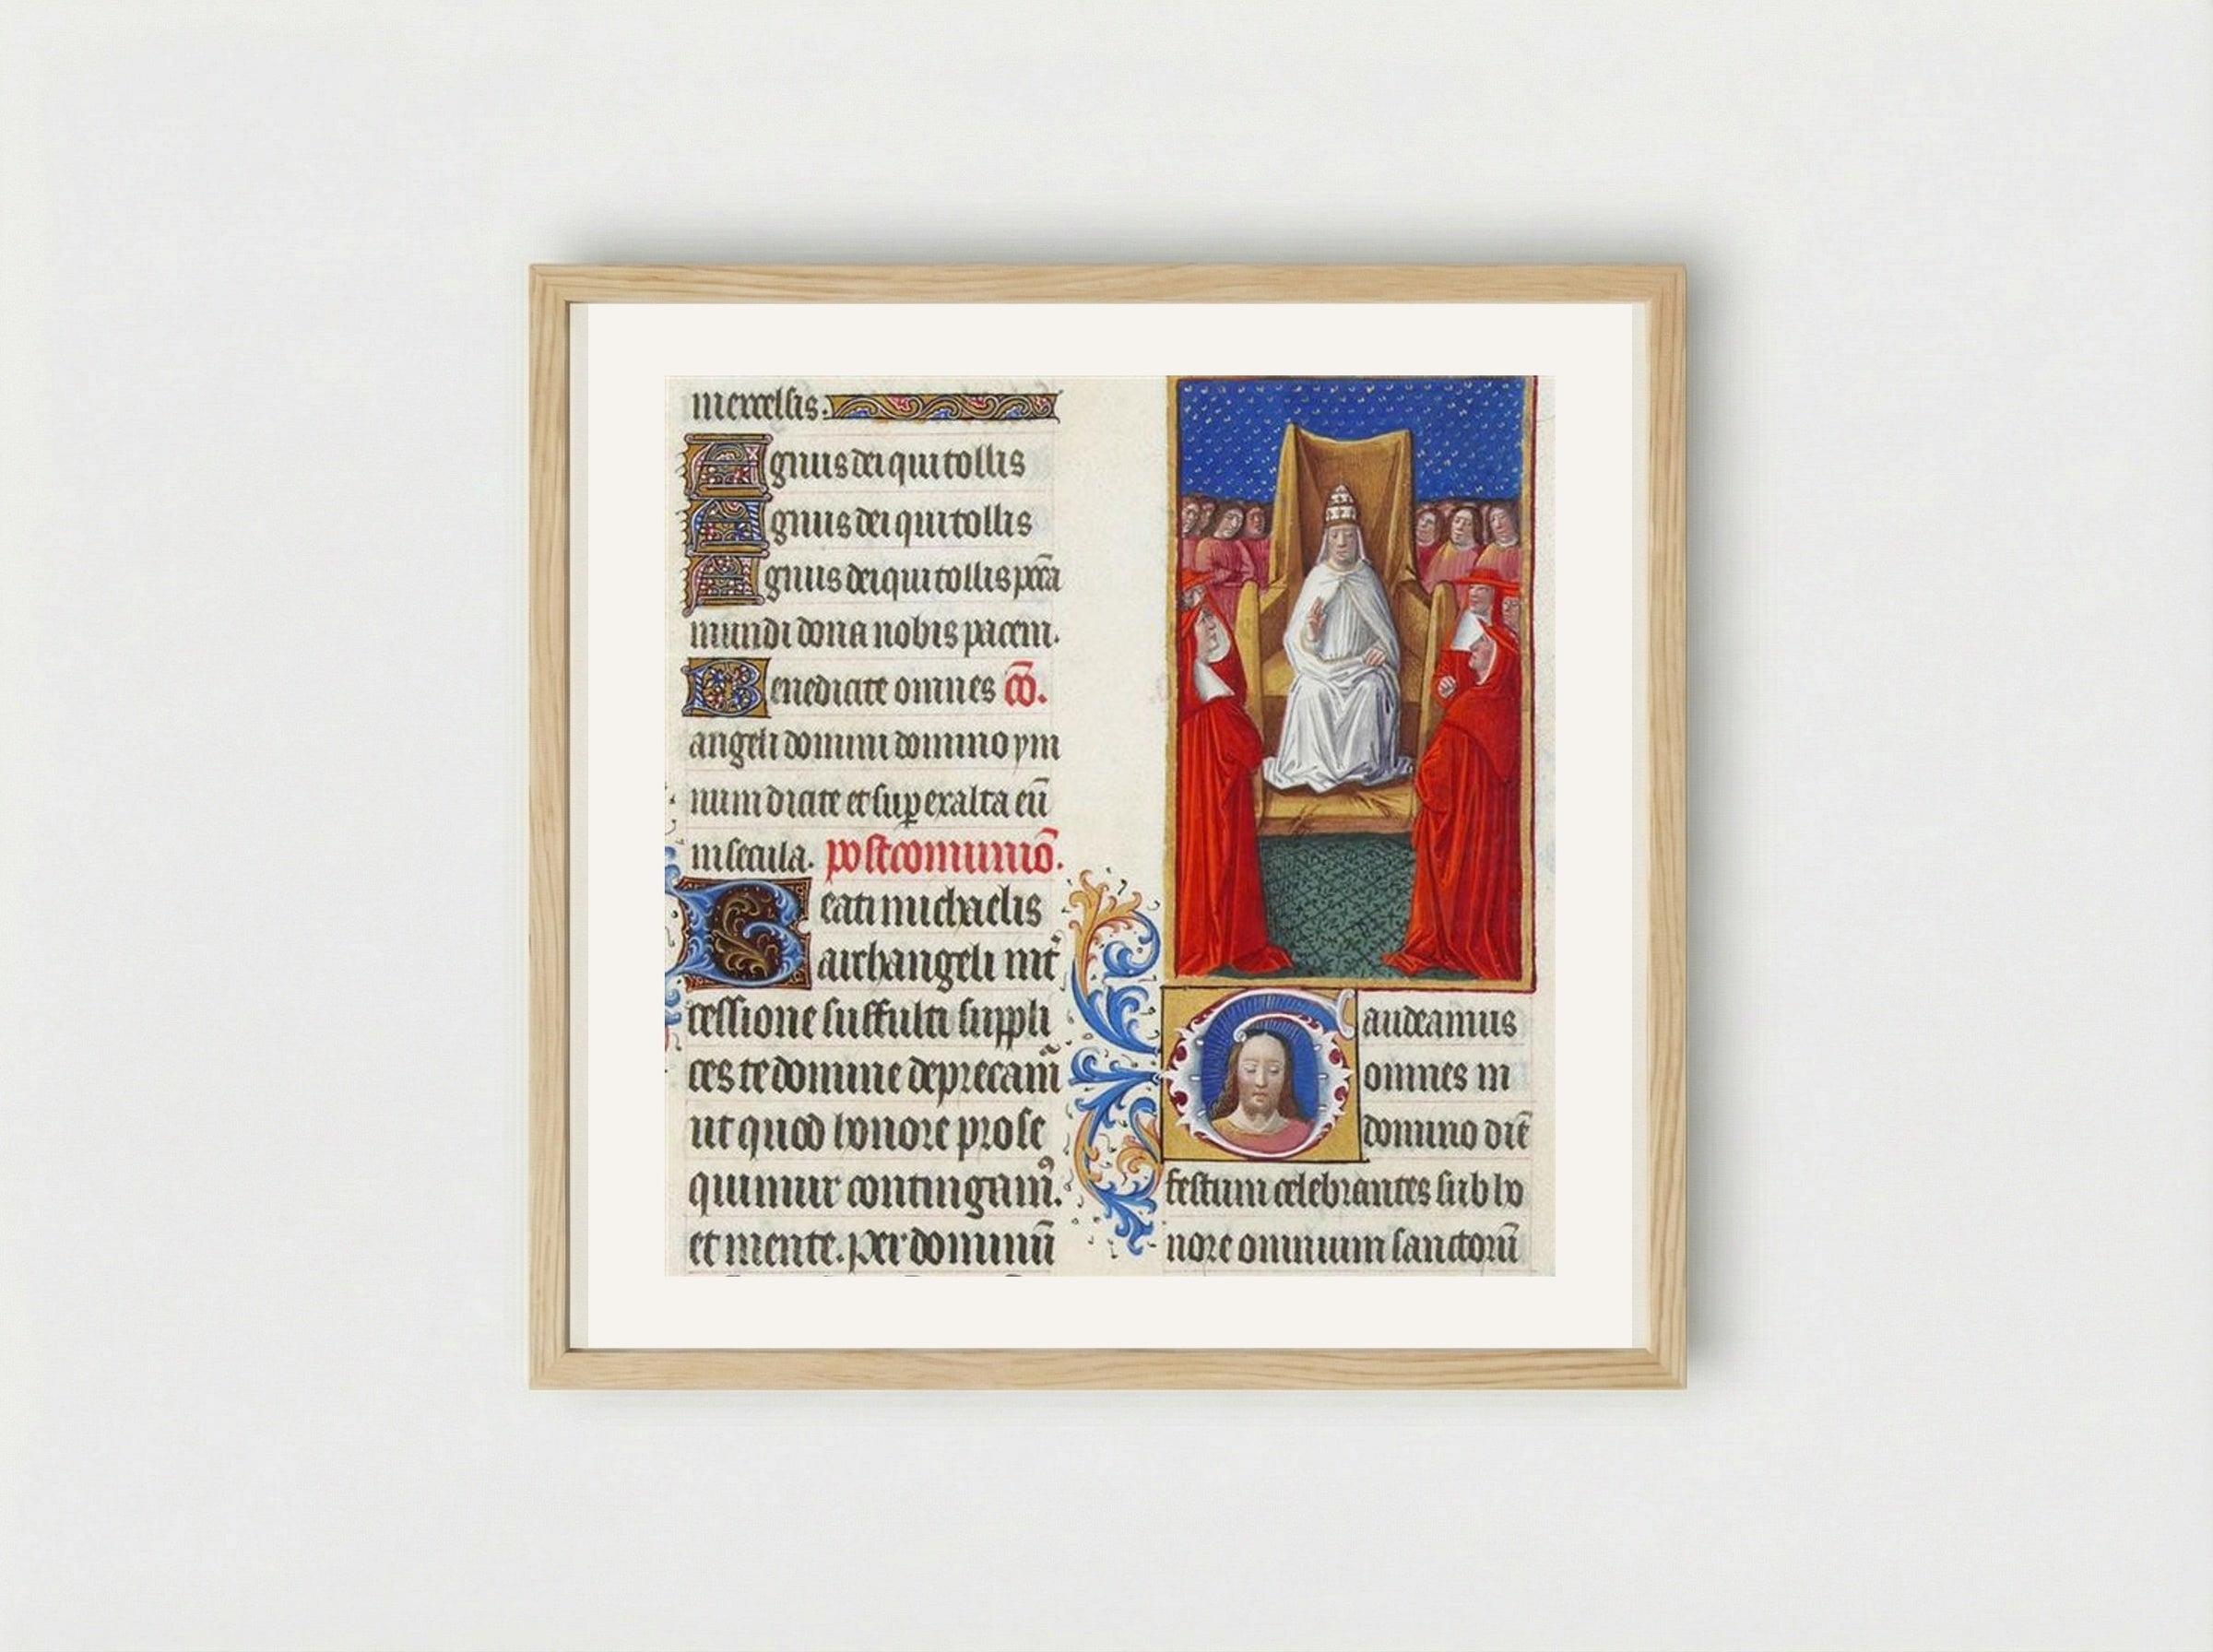 in excelsis.
Agnus dei qui tollis
Agnus dei qui tollis
Agnus dei qui tollis pccā
mundi dona nobis pacem.
Benedicite omnes cō.
angeli domini domino ym
num dicite et superexalta eū
in secula. postcomuniō.
Beati michaelis
archangeli int̄
cessione suffulti suppli
ces te domine deprecam̄
ut quod honore prose
quimur contingam⁹.
et mente. per dominū
Gaudeamus
omnes in
domino diē
festum celebrantes sub ho
nore omnium sanctorū